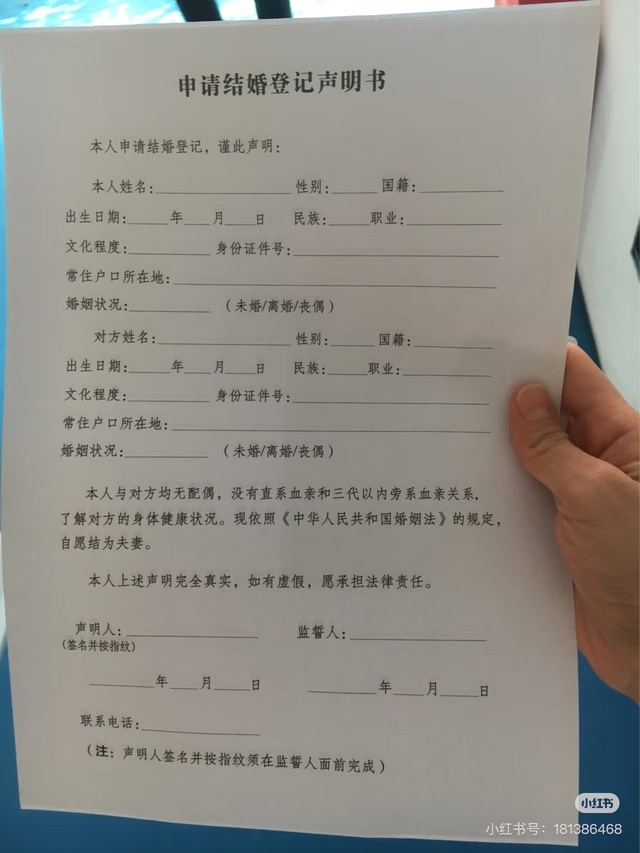 申请结婚登记声明书
本人申请结婚登记，谨此声明：
本人姓名：____________ 性别：_____ 国籍：________
出生日期：_____年____月____日 民族：_____职业：_________
文化程度：_________ 身份证件号：____________________
常住户口所在地：________________________________
婚姻状况：_________ （未婚/离婚/丧偶）
对方姓名：____________ 性别：_____ 国籍：________
出生日期：_____年____月____日 民族：_____职业：_________
文化程度：_________ 身份证件号：____________________
常住户口所在地：________________________________
婚姻状况：_________ （未婚/离婚/丧偶）
本人与对方均无配偶，没有直系血亲和三代以内旁系血亲关系，
了解对方的身体健康状况。现依照《中华人民共和国婚姻法》的规定，
自愿结为夫妻。
本人上述声明完全真实，如有虚假，愿承担法律责任。
声明人：____________ 监誓人：____________
（签名并按指纹）
______年___月____日 ______年___月____日
联系电话：____________
（注：声明人签名并按指纹须在监誓人面前完成）
小红书
小红书号：181386468